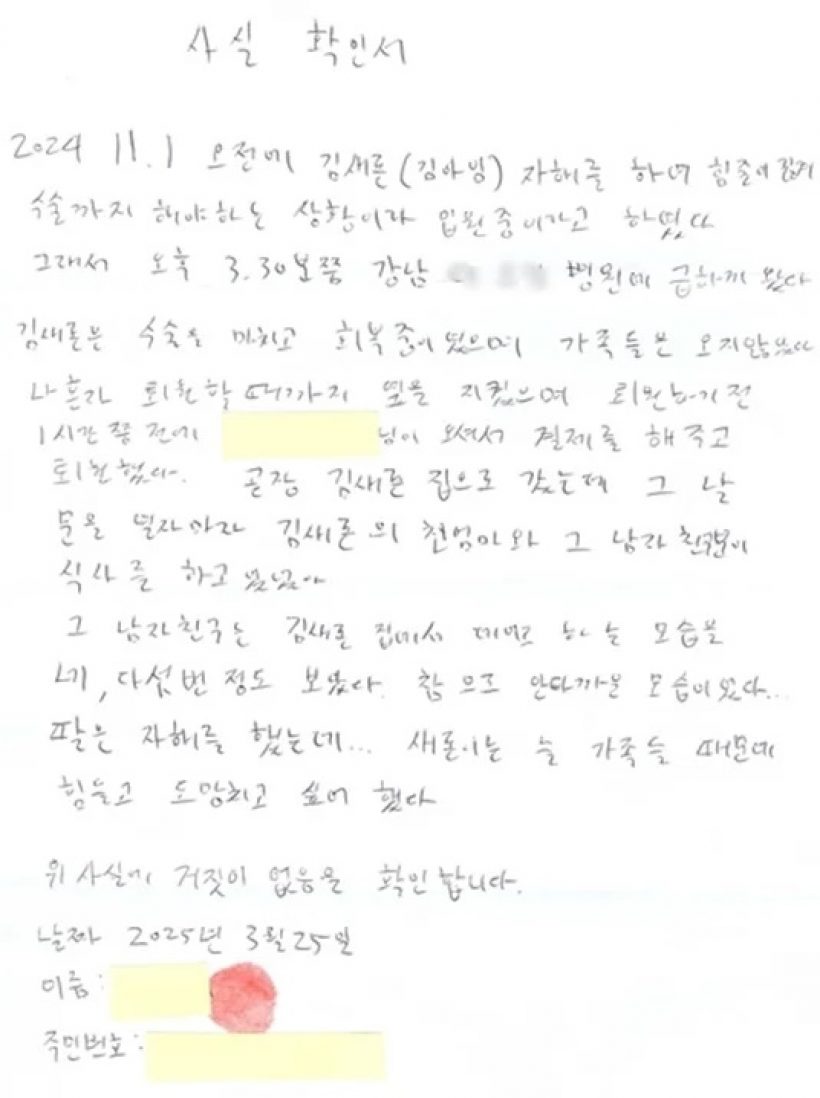 사실 확인서
2024 11.1 오전에 김새론(김아임) 자해를 하여 힘줄이 끊겨
수술까지 해야하는 상황이라 입원중이라고 하였다
그래서 오후 3.30분쯤 강남 병원에 급하게 왔다
김새론은 수술을 마치고 회복중이었으며 가족들은 오지않았다
나혼자 퇴원할때까지 옆을 지켰으며 퇴원하기전
1시간쯤 전에 님이 오셔서 결제를 해주고
퇴원했다. 곧장 김새론 집으로 갔는데 그 날
문을 열자마자 김새론의 친엄마와 그 남자친구분이
식사를 하고 있었다
그 남자친구는 김새론 집에서 하는 모습을
네, 다섯번 정도 보았다. 참으로 안타까운 모습이었다...
딸은 자해를 했는데... 새론이는 늘 가족들 때문에
힘들고 도망치고 싶어 했다
위 사실에 거짓이 없음을 확인합니다.
날짜 2025년 3월25일
이름:
주민번호: